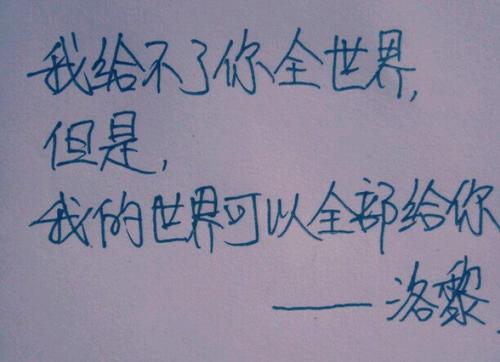 我给不了你全世界,
但是,
我的世界可以全部给你
——洛黎